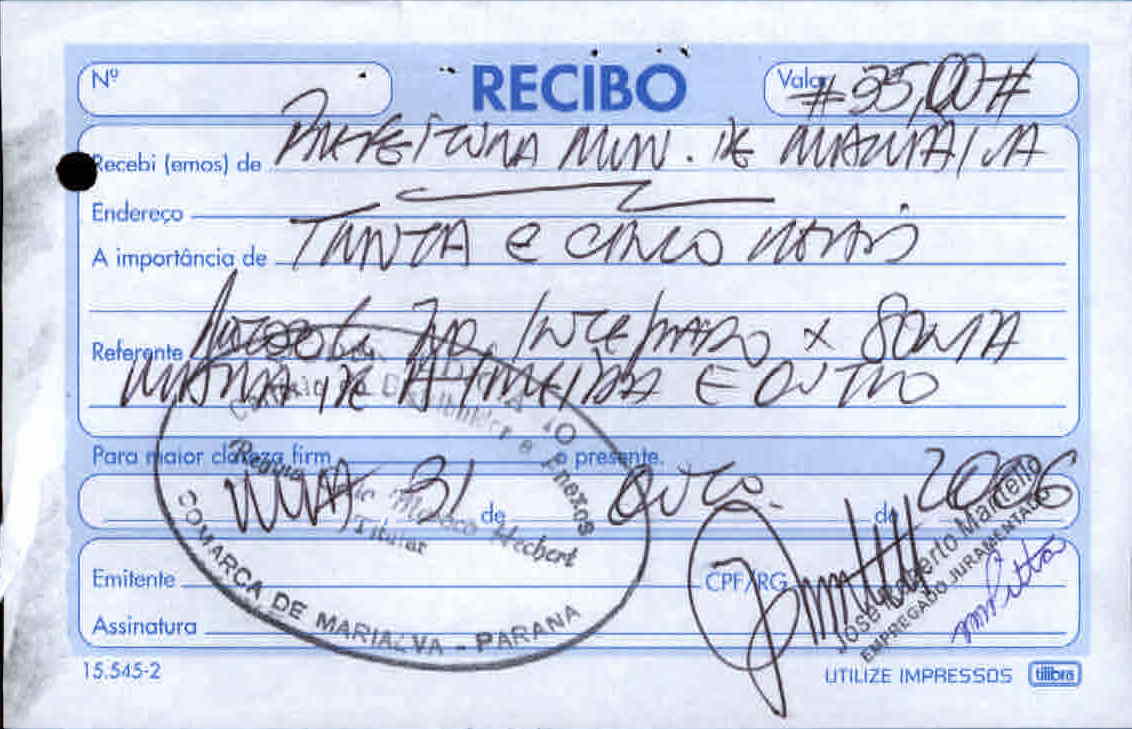 Nº
RECIBO
Valor #35,00#
Recebi (emos) de PREFEITURA MUN. DE MARIALVA
Endereço
A importância de TRINTA E CINCO REAIS
Referente
MARIA DE ALMEIDA E OUTRO
Para maior clareza firm o presente.
31 de OUTO. de 2006
Emitente CPF/RG
Assinatura
Cartório do Distribuidor e Anexos
Titular
COMARCA DE MARIALVA - PARANÁ
José Roberto Martello
EMPREGADO JURAMENTADO
15.545-2
UTILIZE IMPRESSOS tilibra